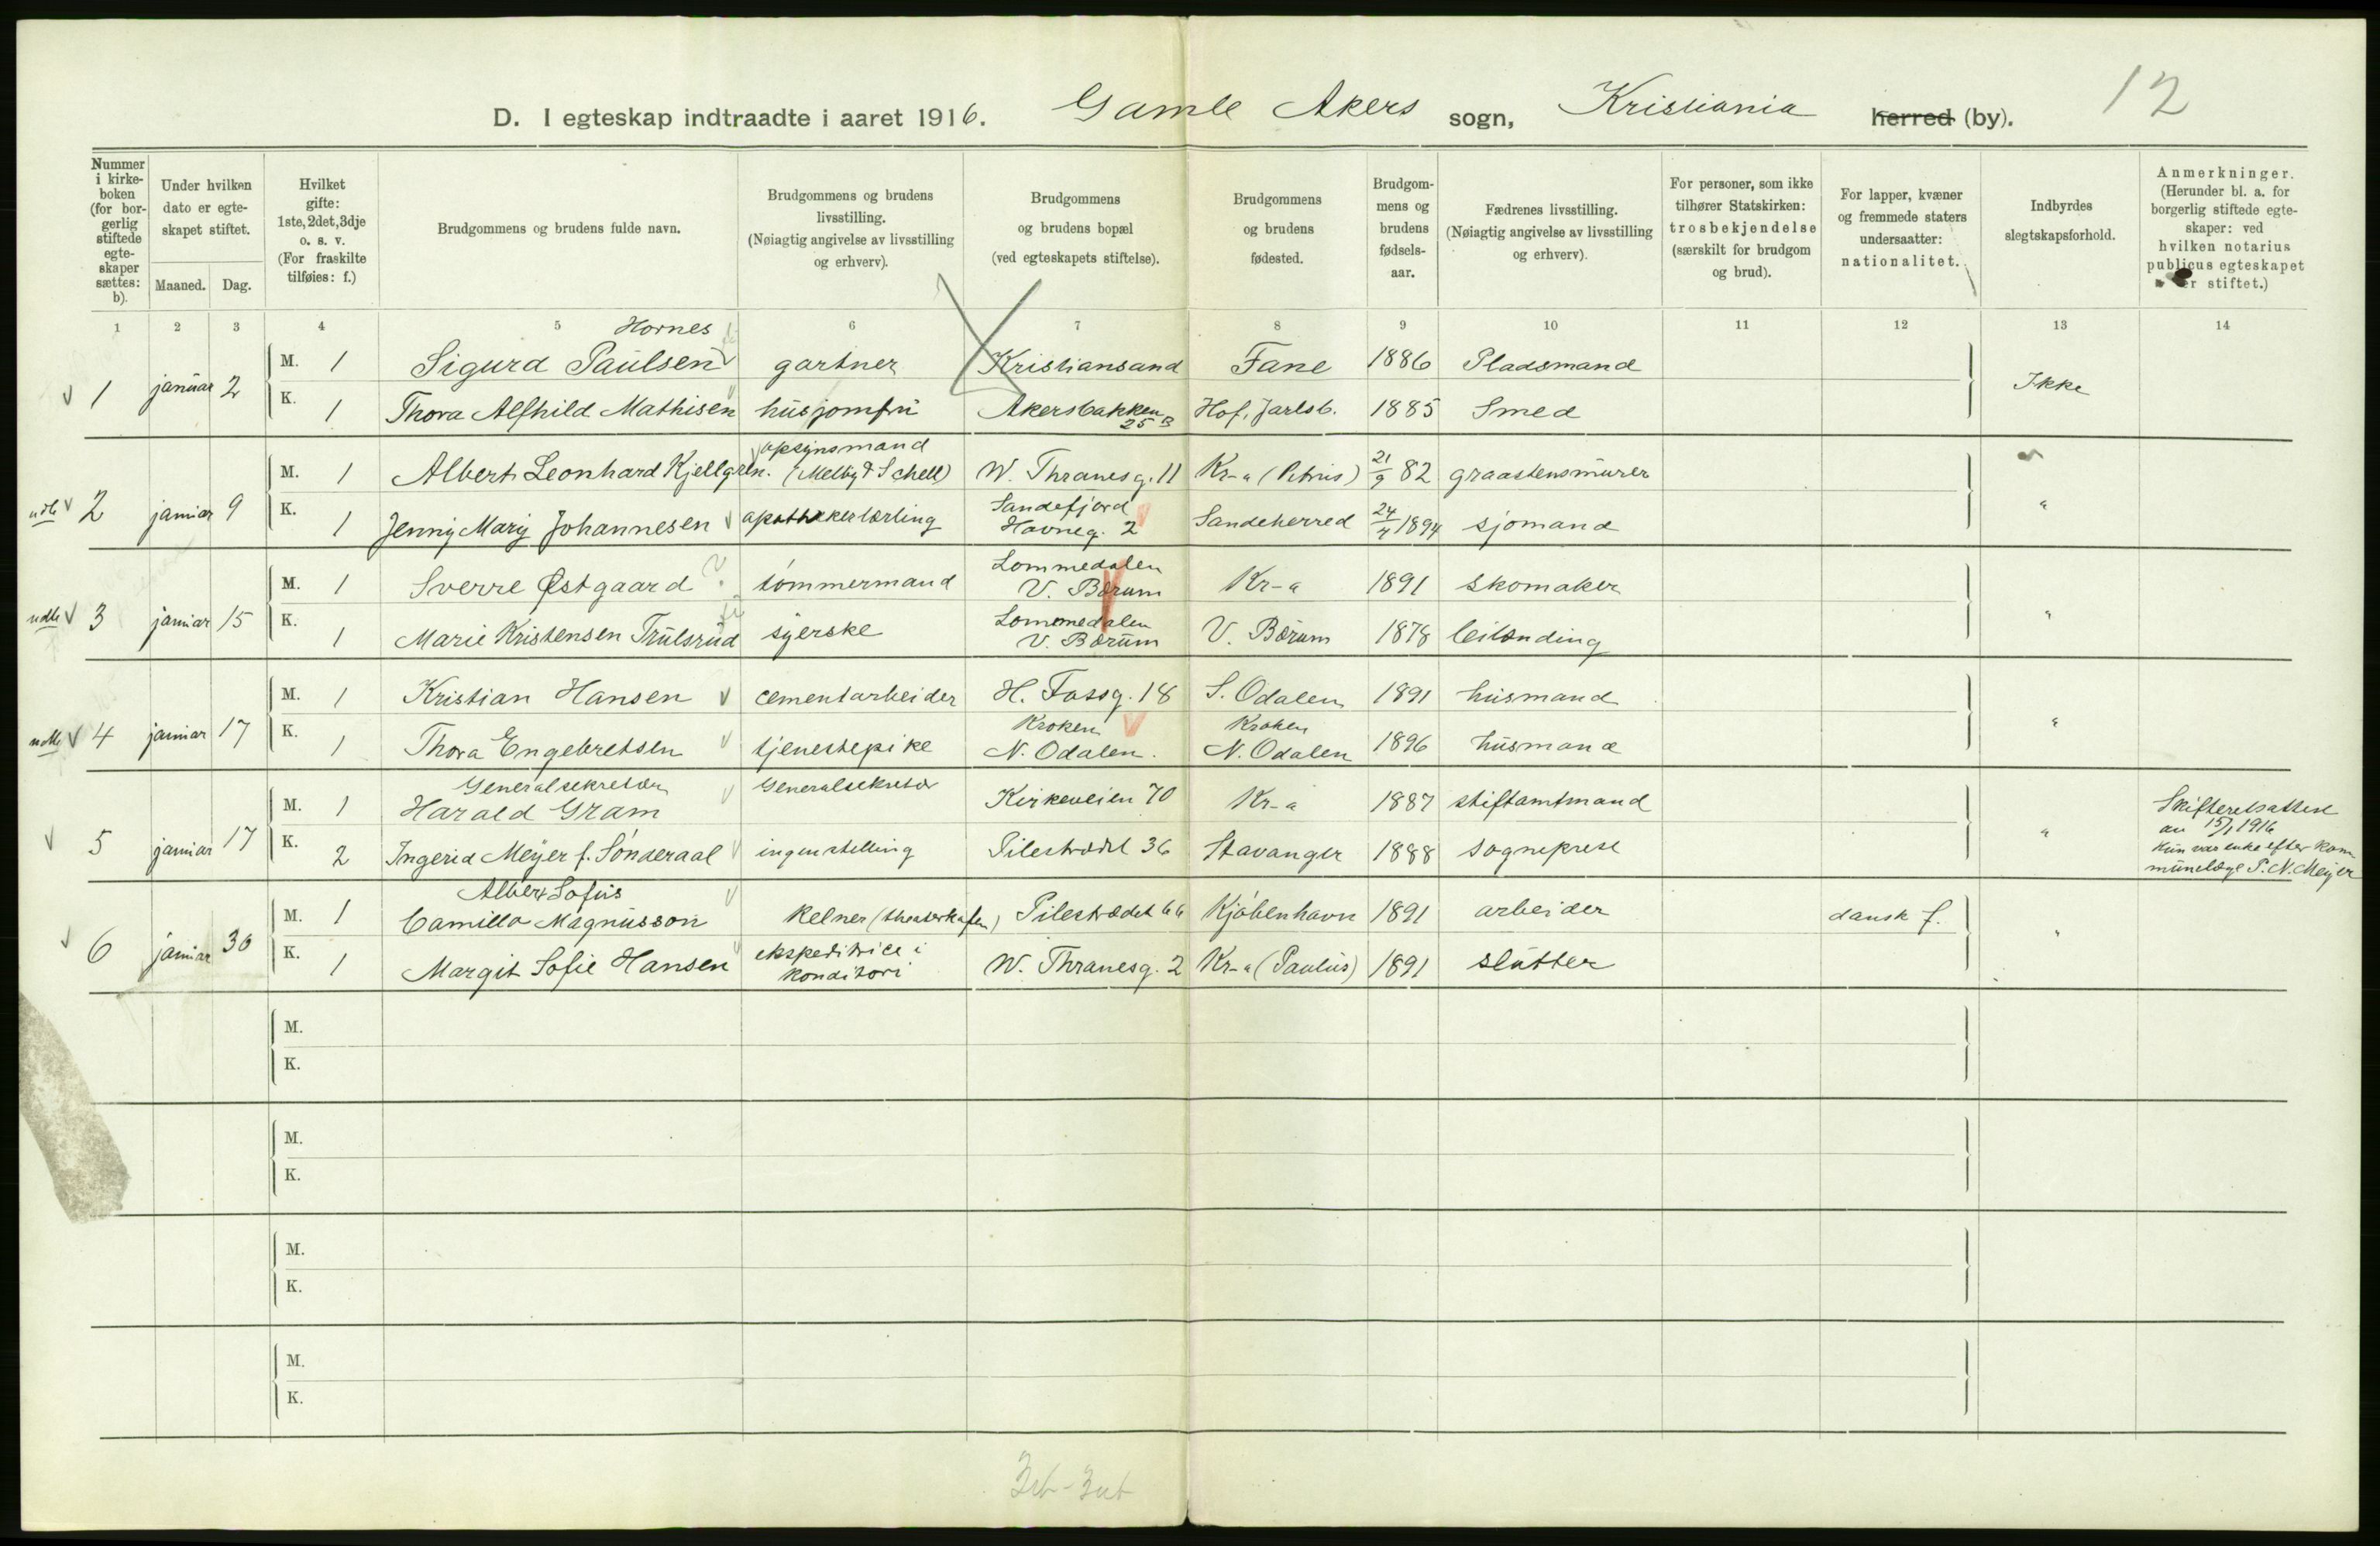 12
D. I egteskap indtraadte i aaret 1916. Gamle Akers sogn, Kristiania herred (by).
Nummer i kirke-boken (for bor-gerlig stiftede egte-skaper sættes: b).
Under hvilken dato er egte-skapet stiftet.
Maaned. Dag.
Hvilket gifte: 1ste, 2det, 3dje o. s. v. (For fraskilte tilføies: f.)
Brudgommens og brudens fulde navn.
Brudgommens og brudens livsstilling. (Nøiagtig angivelse av livsstilling og erhverv).
Brudgommens og brudens bopæl (ved egteskapets stiftelse).
Brudgommens og brudens fødested.
Brudgom-mens og brudens fødsels-aar.
Fædrenes livsstilling. (Nøiagtig angivelse av livsstilling og erhverv).
For personer, som ikke tilhører Statskirken: trosbekjendelse (særskilt for brudgom og brud).
For lapper, kvæner og fremmede staters undersaatter: nationalitet.
Indbyrdes slegtskapsforhold.
Anmerkninger. (Herunder bl. a. for borgerlig stiftede egte-skaper: ved hvilken notarius publicus egteskapet er stiftet.)
1 2 3 4 5 6 7 8 9 10 11 12 13 14
Hornes
M. 1 Sigurd Paulsen gartner Kristiansand Fane 1886 Pladsmand
1 januar 2 Ikke
K. 1 Thora Alfhild Mathisen husjomfru Akersbakken 25 B Hof, Jarlsb. 1885 Smed
opsynsmand
M. 1 Albert Leonhard Kjellgren. (Melby & Schell) W. Thranesg. 11 Kr-a (Petrus) 21/9 82 graastensmurer
udb 2 januar 9 "
Sandefjord
K. 1 Jenny Mary Johannesen apothekerlærling Havneg. 2 Sandeherred 24/4 1894 sjømand
Lommedalen
M. 1 Sverre Østgaard ? tømmermand V. Bærum Kr-a 1891 skomaker
udb 3 januar 15 "
Lommedalen
K. 1 Marie Kristensen Trulsrud syerske V. Bærum V. Bærum 1878 leilænding
M. 1 Kristian Hansen cementarbeider H. Fossg. 18 S. Odalen 1891 husmand
udb 4 januar 17 "
Kroken Kroken
K. 1 Thora Engebretsen tjenestepike N. Odalen. N. Odalen 1896 husmand
Generalsekretær Generalsekretær
M. 1 Harald Gram Kirkeveien 70 Kr-a 1887 stiftamtmand
5 januar 17 "
K. 2 Ingerid Meyer f. Sønderaal ingen stilling Pilestrædet 36 Stavanger 1888 sogneprest
Skifteretsattest
av 15/1 1916
Hun var enke efter kom-
munelæge P. N. Meyer
Albert Sofus
M. 1 Camillo Magnusson kelner (theaterkafeen) Pilestrædet 66 Kjøbenhavn 1891 arbeider dansk f.
6 januar 30 "
ekspeditrice i
K. 1 Margit Sofie Hansen konditori W. Thranesg. 2 Kr-a (Paulus) 1891 slutter
M.
K.
M.
K.
M.
K.
M.
K.